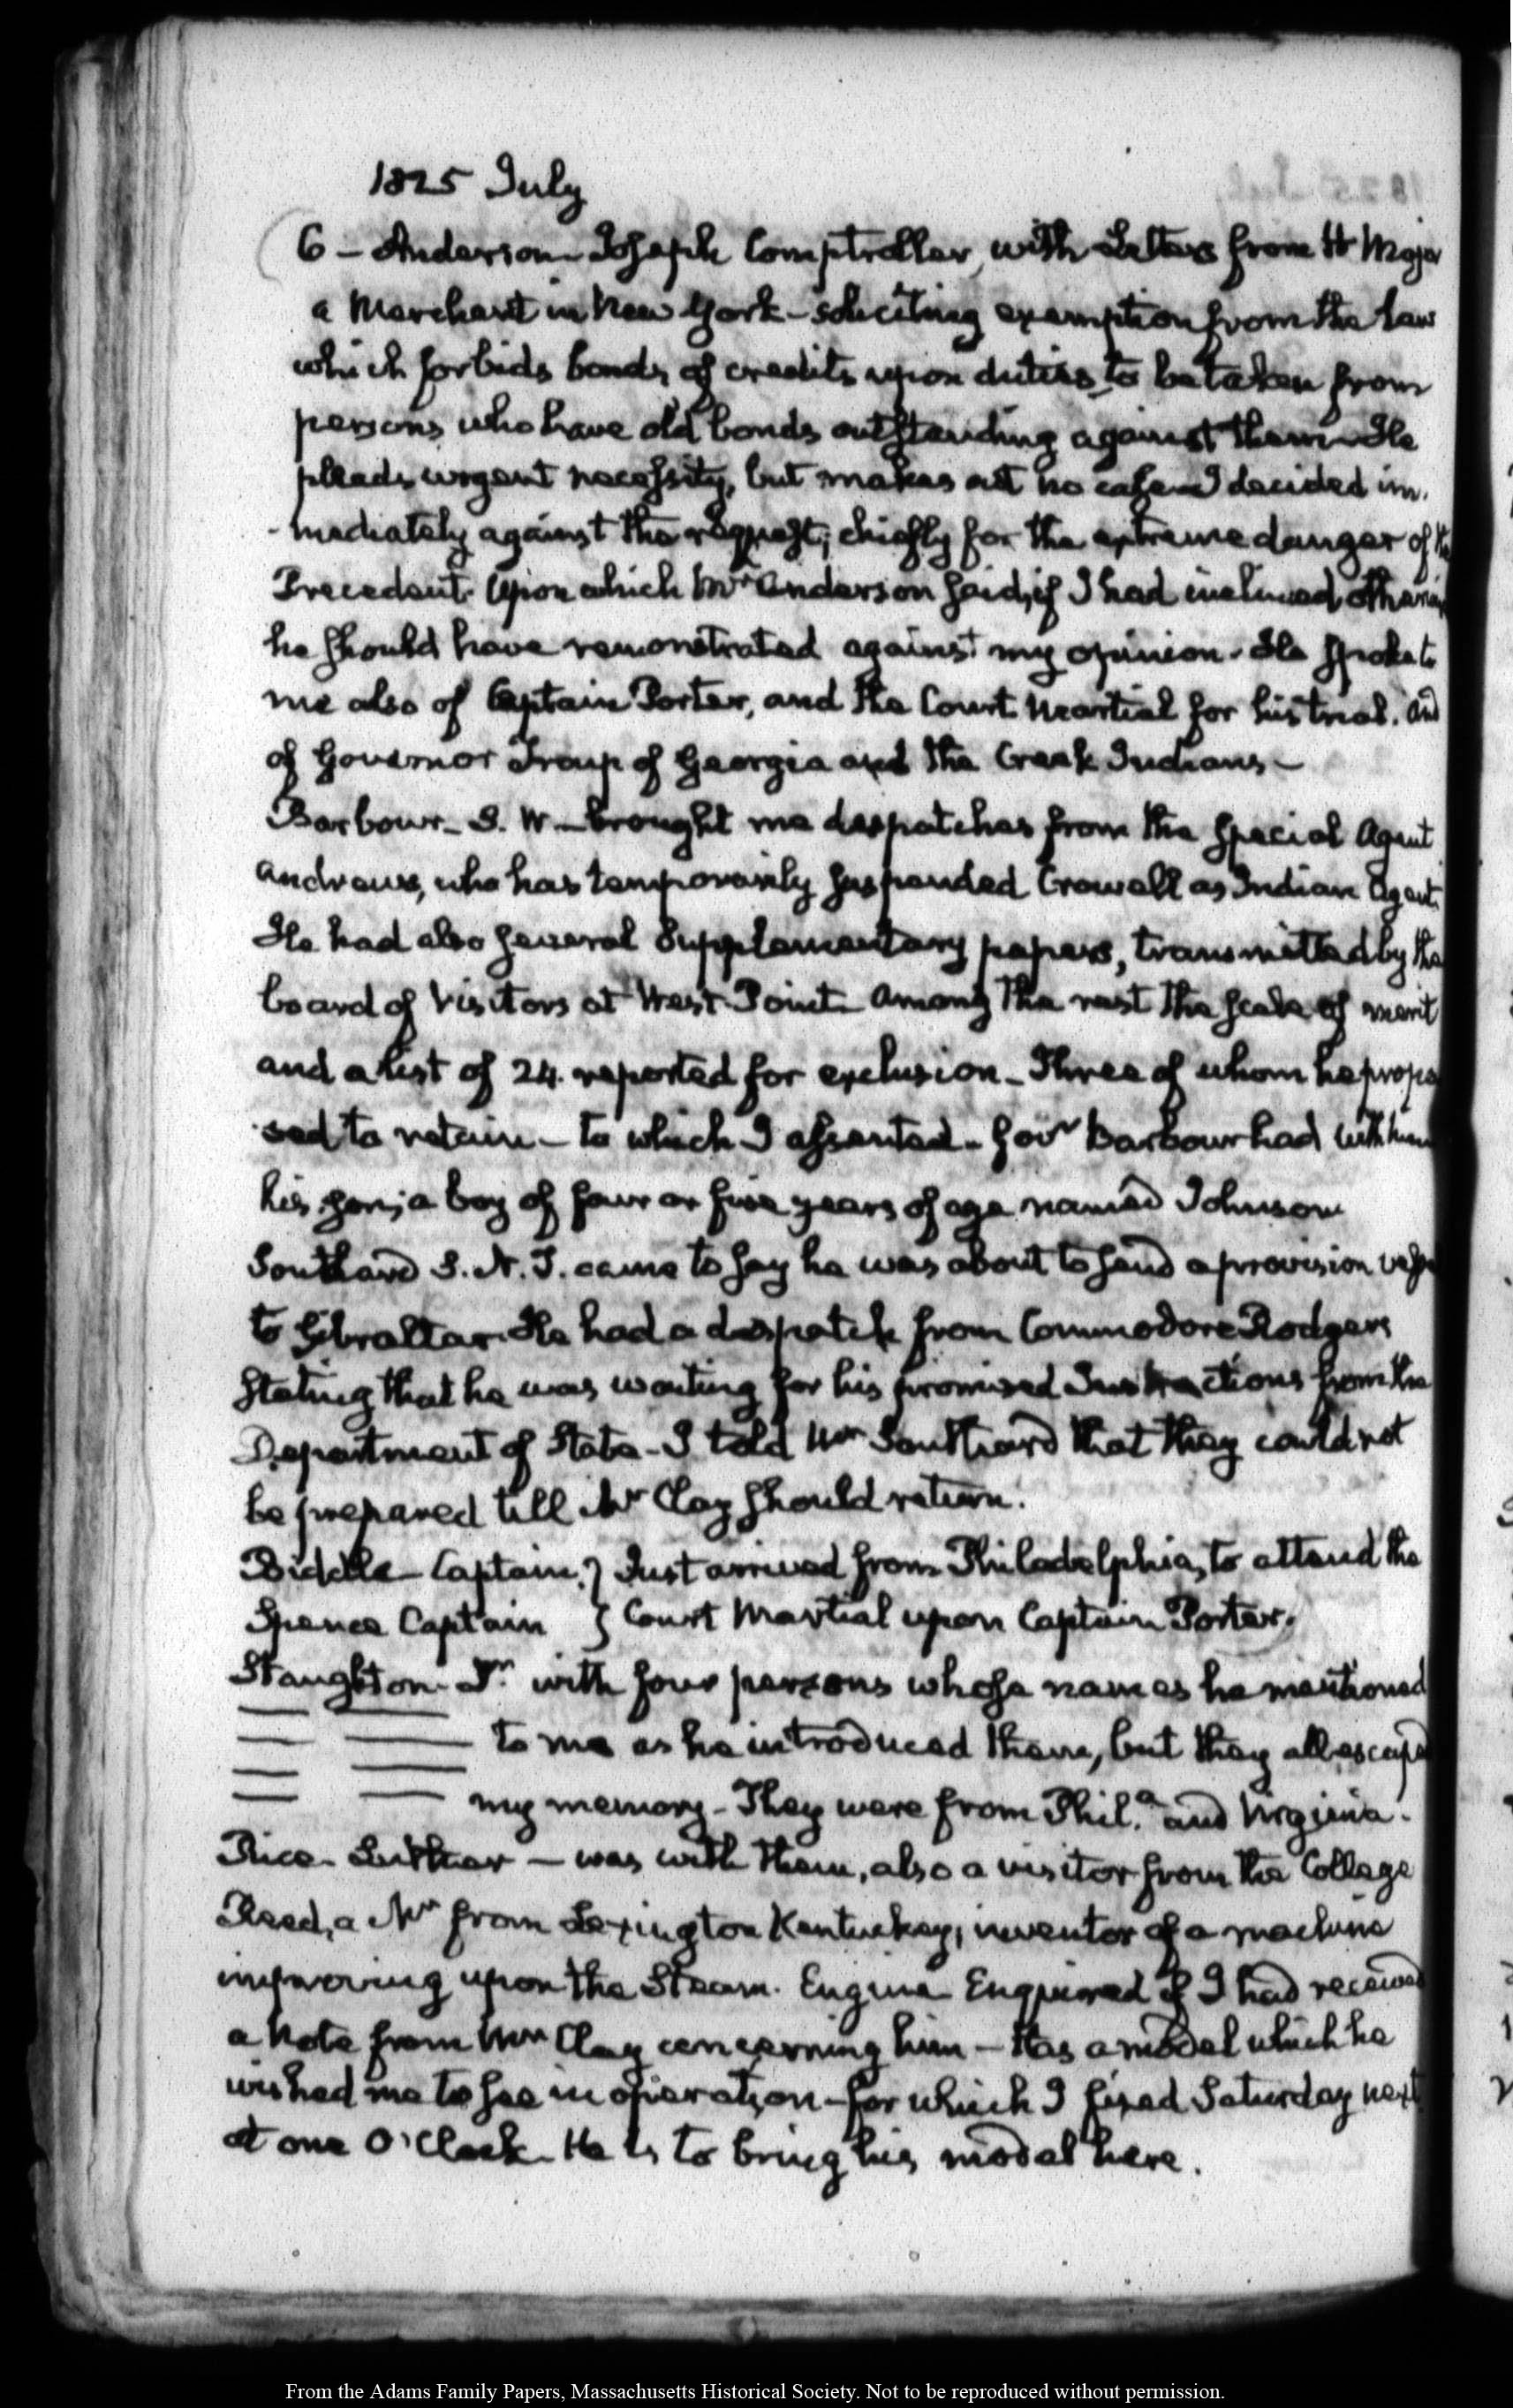 1825 July
6 – Anderson – Joseph Comptroller, with Letters from H
a Merchant in New York – soliciting exemption from the Law
which forbids bonds of credits upon duties to be taken from
persons who have old bonds outstanding against them – He
pleads urgent necessity, but makes out no case – I decided im-
-mediately against the request; chiefly for the extreme danger of the
Precedent. Upon which Mr Anderson said, if I had inclined otherwise
he should have remonstrated against my opinion. He spoke to
me also of Captain Porter, and the Court Martial for his trial. and
of Governor Troup of Georgia and the Creek Indians –
Barbour – S. W – brought me despatches from the special Agent
Andrews, who has temporarily suspended Crowell as Indian Agent.
He had also several Supplementary papers, transmitted by the
board of Visitors at West-Point – Among the rest the scale of merit
and a list of 24. reported for exclusion – Three of whom he propo
sed to retain – to which I assented – Govr Barbour had with him
his son; a boy of four or five years of age named Johnson
Southard S. N. J. came to say he was about to send a provision vessel
to Gibraltar. He had a despatch from Commodore Rodgers
stating that he was waiting for his promised Instructions from the
Department of State – I told Mr Southard that they could not
be prepared till Mr Clay should return.
Biddle – Captain. } Just arrived from Philadelphia, to attend the
Spence Captain } Court Martial upon Captain Porter.
Staughton – Dr. with four persons whose names he mentioned
to me as he introduced them, but they all escaped
my memory – They were from Phila. and Virginia.
Rice – Luther – was with them, also a visitor from the College
Reed, a Mr from Lexington Kentuckey, inventor of a machine
improving upon the Steam. Engine Enquired if I had received
a Note from Mr Clay concerning him – Has a model which he
wished me to see in operation – for which I fixed Saturday next
at one O'Clock. He is to bring his model here.
From the Adams Family Papers, Massachusetts Historical Society. Not to be reproduced without permission.